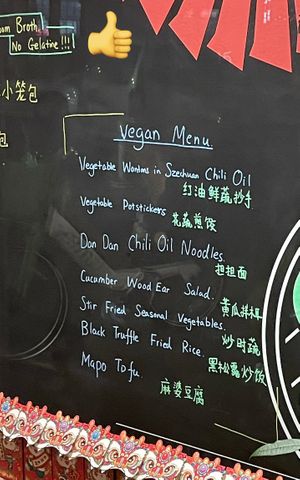 Broth
No Gelatine!!!
小笼包
包
Vegan Menu
Vegetable Wontons in Szechuan Chili Oil
红油鲜蔬抄手
Vegetable Potstickers
花蔬煎饺
Dan Dan Chili Oil Noodles.
担担面
Cucumber Wood Ear Salad.
黄瓜拌木耳
Stir Fried Seasonal Vegetables.
炒时蔬
Black Truffle Fried Rice.
黑松露炒饭
Mapo Tofu.
麻婆豆腐